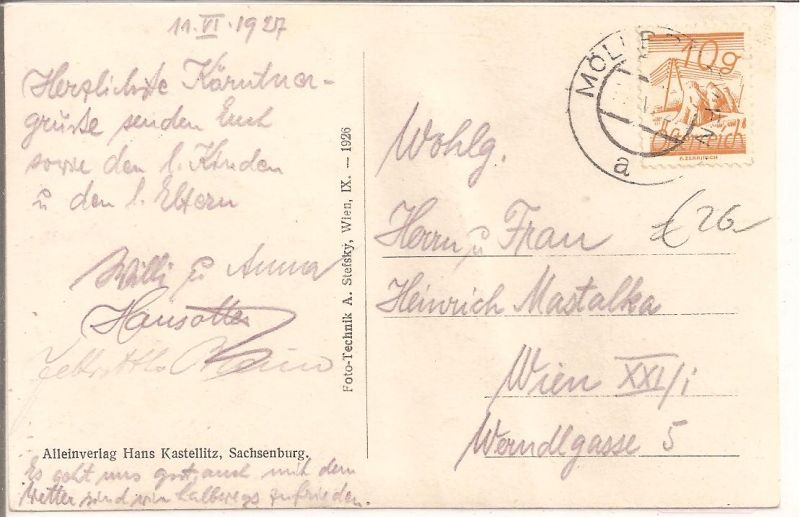 11.VI.1927
Herzlichste Kärntner-
grüße senden Euch
sowie den l. Kindern
u den l. Eltern
Willi u Anna
Hansotter
Alleinverlag Hans Kastellitz, Sachsenburg.
Es geht uns gut, auch mit dem
Wetter sind wir halbwegs zufrieden.
Foto-Technik A. Stefsky, Wien, IX. — 1926
MÖLL
a
10g
Österreich
Wohlg.
€ 26-
Herrn u Frau
Heinrich Mastalka
Wien XXI/1
Werndlgasse 5